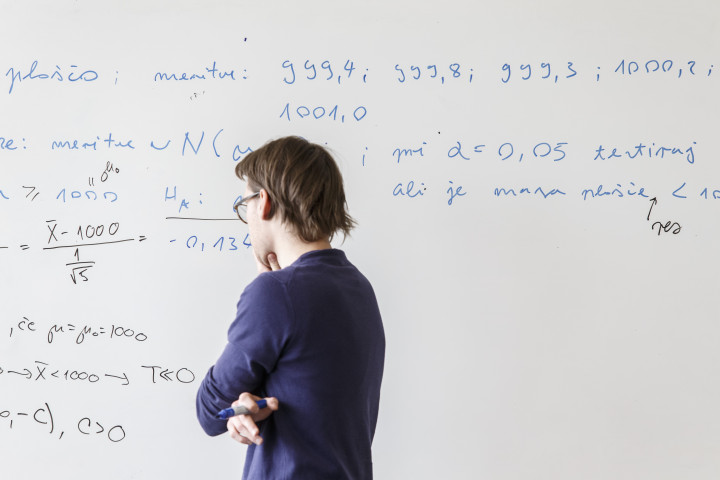 ploščo; meritve: 999,4; 999,8; 999,3; 1000,2;
1001,0
re: meritve ~ N( ; pri α = 0,05 testiraj
μ₀
≥ 1000 H_A: ali je masa plošče < 10
res
= (X̄ - 1000) / (1/√5) = -0,134
, če μ = μ₀ = 1000
→ X̄ < 1000 → T ≪ 0
, -C), C > 0